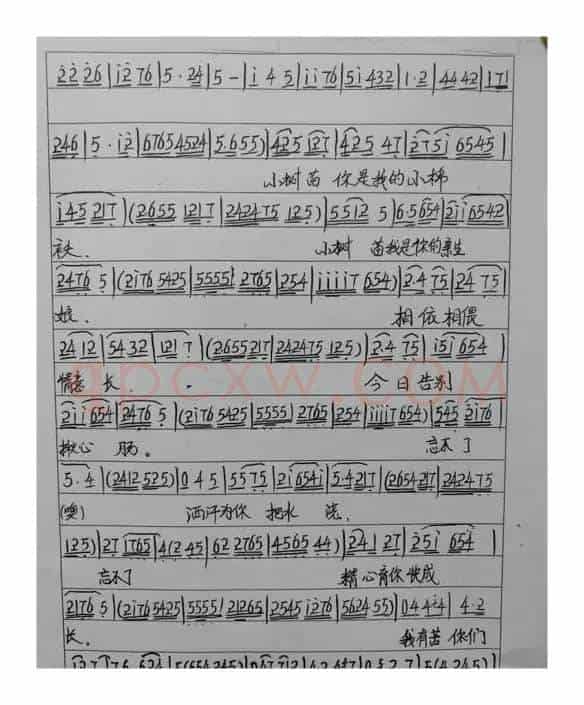 2̇2̇ 2̇6|i2̇ 76|5·24|5-|i 4 5|ii76|5i432|1·2|4442|171
246|5·i2̇|67654524|5.655)|425 127|425 47|2̇75i 6545|
小树苗 你是我的小棉
i45 217|(2655 1217|242475 125)|5512 5|6·5654|2̇ii6542|
袄. 小树 苗我是你的亲生
2476 5|(2i76 5425|5555! 2765|254|iiiii7 654)|2·4 75|24 75|
娘. 相依相偎
24 12|5432|121 7|(2655217|242475 125)|2·4 75|i5i 654|
情意长. 今日告别
apcxw.com
2̇ii 654|2476 5|(2i76 5425|5555! 2765|254|iiiii7 654)|545 2̇i76|
揪心 肠。 忘不了
5.4|(2412525)|045|5575|2̇i654i|5.4217|(2654217|242475
(噢) 洒汗为你 把水 浇.
125)|27 1765|4(245|62 2765|4565 44)|241 27|2̇5i 654|
忘不了 精心育你快成
2176 5|(2i76 5425|5555! 21265|2545 i276|5624 55)|0444|4·2
长。 我有苦 你们